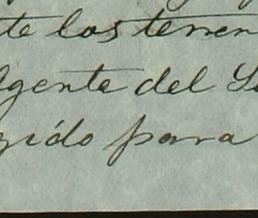 te los terren
gente del S
gido para